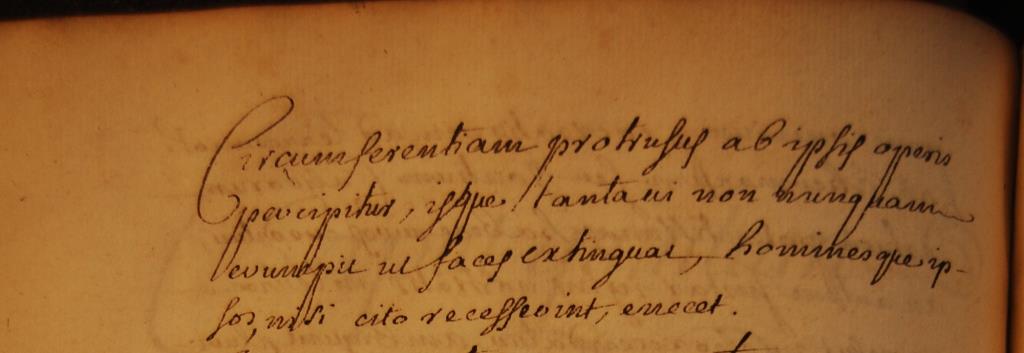 Circumferentiam protrusus ab ipsis operis
percipitur, isque tanta ui non nunquam
erumpit ut faces extinguat, hominesque ip-
sos, nisi cito recesserint, enecet.